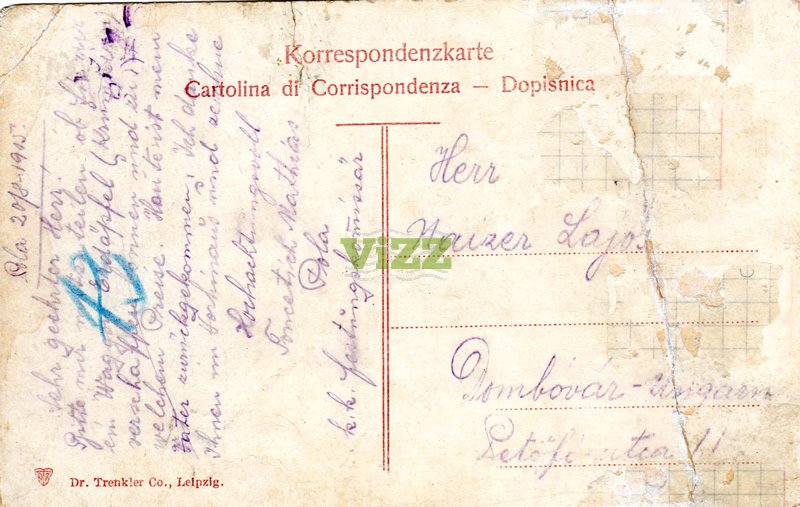 Korrespondenzkarte
Cartolina di Corrispondenza — Dopisnica
Pola 20/8 1915
Sehr geehrter Herr!
Bitte mir mitzuteilen ob Sie mir
ein Wag Erdäpfel (Krumpir)
verschaffen können und zu
welchem Preise. Heute ist mein
Vater zurückgekommen; Ich danke
Ihnen im Vorhinaus und zeichne
Hochachtungsvoll
Mathias
Pola
k.k. Festungskomissär
43
Herr
Naizer Lajos
Dombóvár - Ungarn
Petőfi utca 11
ViZZ
Dr. Trenkler Co., Leipzig.